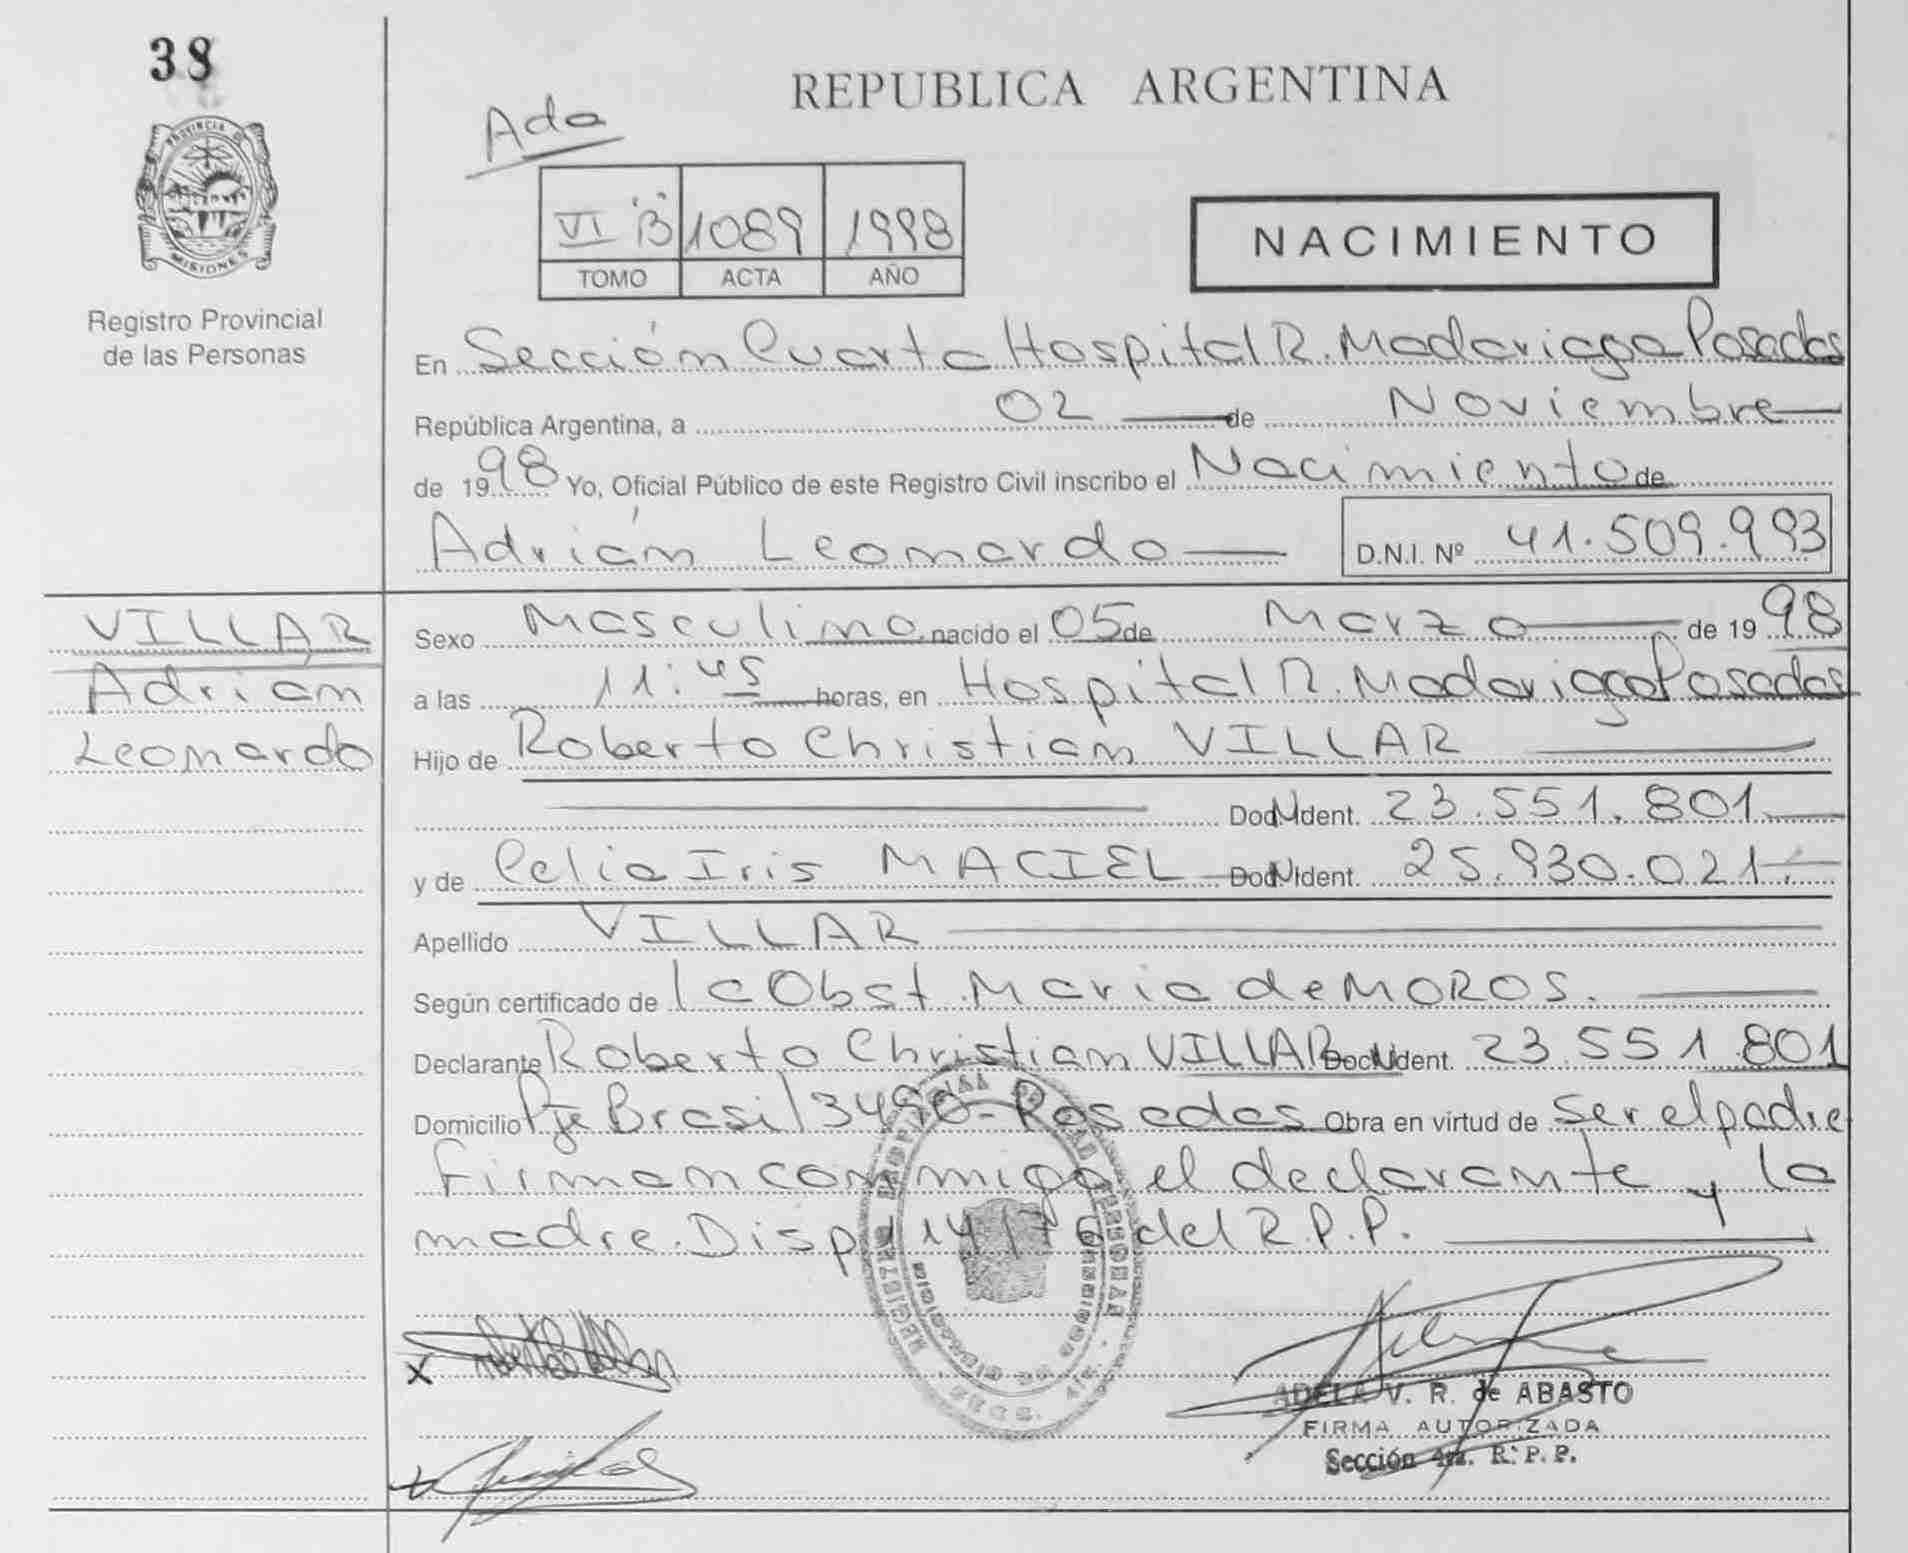 38
REPUBLICA ARGENTINA
Ada
VI "B" 1089 1998
TOMO ACTA AÑO
NACIMIENTO
PROVINCIA DE MISIONES
Registro Provincial
de las Personas
En Sección Cuarta Hospital R. Madariaga Posadas
República Argentina, a 02 de Noviembre
de 1998 Yo, Oficial Público de este Registro Civil inscribo el Nacimiento de
Adrián Leonardo D.N.I. Nº 41.509.993
VILLAR
Adrián
Leonardo
Sexo Masculino nacido el 05 de Marzo de 1998
a las 11:45 horas, en Hospital R. Madariaga Posadas
Hijo de Roberto Christian VILLAR
Doc. Ident. 23.551.801
y de Celia Iris MACIEL Doc. Ident. 25.930.021
Apellido VILLAR
Según certificado de la Obst. Maria de MOROS.
Declarante Roberto Christian VILLAR Doc. Ident. 23.551.801
Domicilio Pje Brasil 3490 - Posadas Obra en virtud de ser el padre
Firman conmigo el declarante y la
madre. Disp. 14/76 del R.P.P.
ADELA V. R. de ABASTO
FIRMA AUTORIZADA
Sección 4ta. R. P. P.